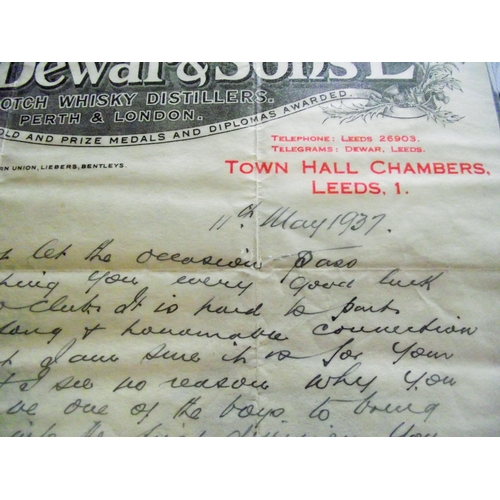 Dewar & Sons L
OTCH WHISKY DISTILLERS.
PERTH & LONDON.
OLD AND PRIZE MEDALS AND DIPLOMAS AWARDED.
RN UNION, LIEBERS, BENTLEYS.
TELEPHONE: LEEDS 26903.
TELEGRAMS: DEWAR, LEEDS.
TOWN HALL CHAMBERS,
LEEDS, 1.
11th May 1937.
t let the occasion pass
hing you every good luck
clubs It is hard to part
long & honourable connection
t I am sure it is for your
t I see no reason why you
ve one of the boys to bring
the first division You